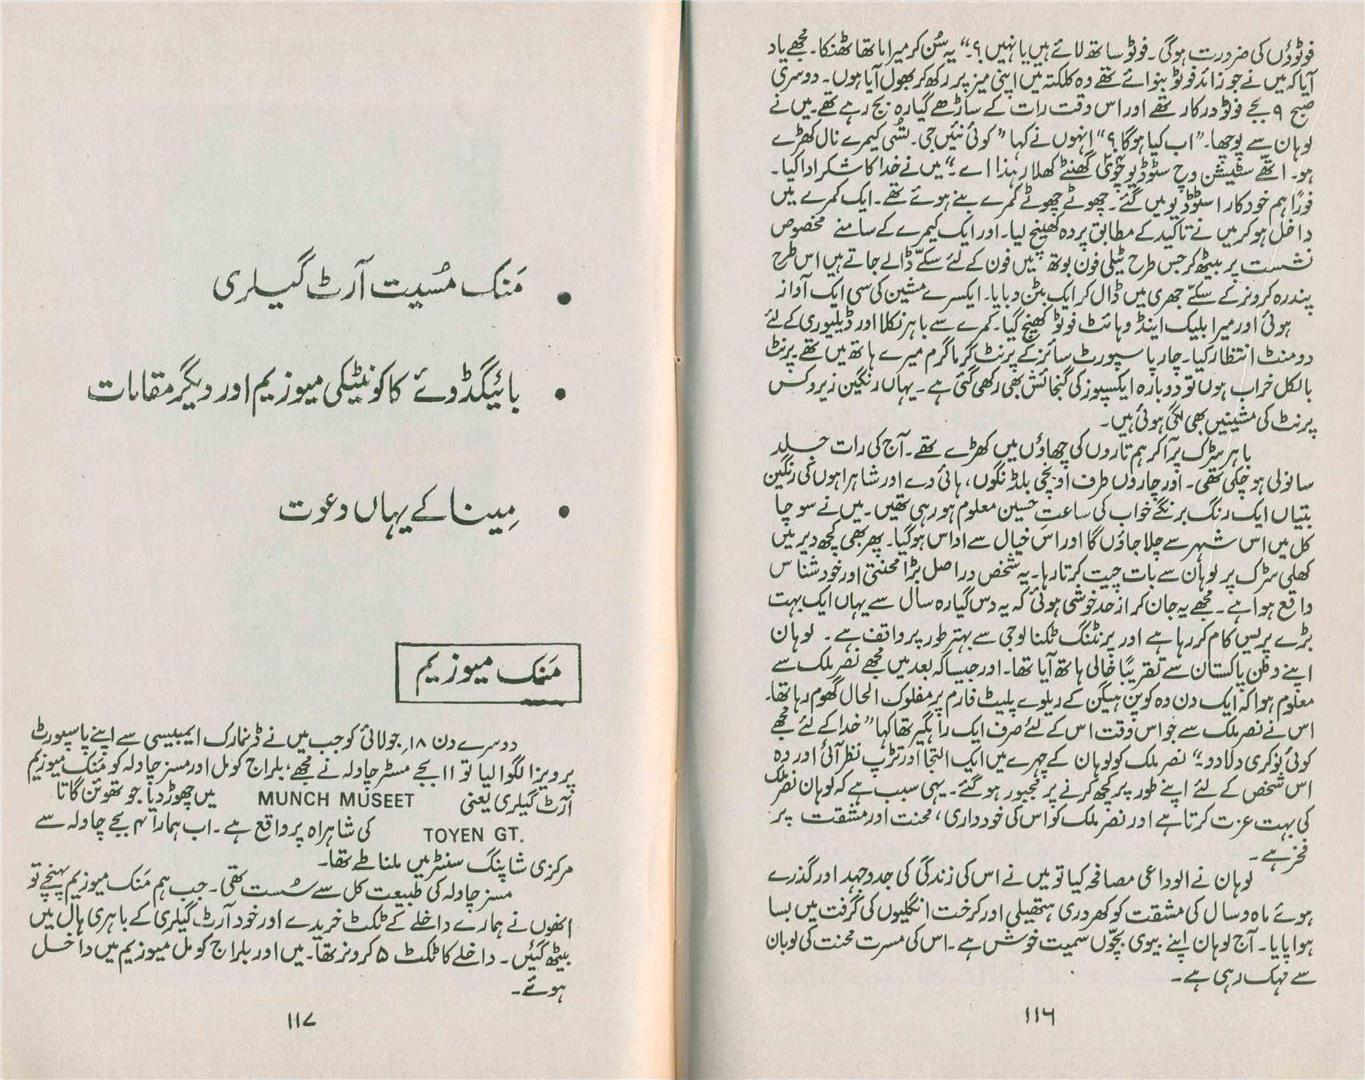 فوٹوؤں کی ضرورت ہوگی۔ فوٹو ساتھ لائے ہیں یا نہیں؟۔" یہ سُن کر میرا ماتھا ٹھنکا۔ مجھے یاد
آیا کہ میں نے جو زائد فوٹو بنوائے تھے وہ کلکتہ میں اپنی میز پر رکھ کر بھول آیا ہوں۔ دوسری
صبح ۹ بجے فوٹو درکار تھے اور اس وقت رات کے ساڑھے گیارہ بج رہے تھے۔ میں نے
لوہان سے پوچھا۔ "اب کیا ہوگا؟" انہوں نے کہا "کوئی نئیں جی۔ تسُی کیمرے نال کھڑے
ہو۔ اتھّے سٹیشن وچ سٹوڈیو چَوّی گھنٹے کھلا رہندا اے۔" میں نے خدا کا شکر ادا کیا۔
فوراً ہم خودکار اسٹوڈیو میں گئے۔ چھوٹے چھوٹے کمرے بنے ہوئے تھے۔ ایک کمرے میں
داخل ہو کر میں نے تاکید کے مطابق پردہ کھینچ لیا۔ اور ایک کیمرے کے سامنے مخصوص
نشست پر بیٹھ کر جس طرح ٹیلی فون بوتھ میں فون کے لئے سکّے ڈالے جاتے ہیں اس طرح
پندرہ کرونر کے سکّے جھری میں ڈال کر ایک بٹن دبایا۔ ایکسرے مشین کی سی ایک آواز
ہوئی اور میرا بلیک اینڈ وہائٹ فوٹو کھنچ گیا۔ کمرے سے باہر نکلا اور ڈیلیوری کے لئے
دو منٹ انتظار کیا۔ چار پاسپورٹ سائز کے پرنٹ گرماگرم میرے ہاتھ میں تھے۔ پرنٹ
بالکل خراب ہوں تو دوبارہ ایکسپوز کی گنجائش بھی رکھی گئی ہے۔ یہاں رنگین زیروکس
پرنٹ کی مشینیں بھی لگی ہوئی ہیں۔
باہر سڑک پر آکر ہم تاروں کی چھاؤں میں کھڑے تھے۔ آج کی رات جلد
سانولی ہو چکی تھی۔ اور چاروں طرف اونچی بلڈنگوں، ہائی وے اور شاہراہوں کی رنگین
بتیاں ایک رنگ برنگے خواب کی ساعتِ حسین معلوم ہو رہی تھیں۔ میں نے سوچا
کل میں اس شہر سے چلا جاؤں گا اور اس خیال سے اداس ہوگیا۔ پھر بھی کچھ دیر میں
کھلی سڑک پر لوہان سے بات چیت کرتا رہا۔ یہ شخص دراصل بڑا محنتی اور خودشناس
واقع ہوا ہے۔ مجھے یہ جان کر از حد خوشی ہوئی کہ یہ دس گیارہ سال سے یہاں ایک بہت
بڑے پریس کام کر رہا ہے اور پرنٹنگ ٹکنالوجی سے بہتر طور پر واقف ہے۔ لوہان
اپنے وطن پاکستان سے تقریباً خالی ہاتھ آیا تھا۔ اور جیسا کہ بعد میں مجھے نصر ملک سے
معلوم ہوا کہ ایک دن وہ کوپن ہیگن کے ریلوے پلیٹ فارم پر مفلوک الحال گھوم رہا تھا۔
اس نے نصر ملک سے جو اس وقت اس کے لئے صرف ایک راہگیر تھا کہا "خدا کے لئے مجھے
کوئی نوکری دلا دو۔" نصر ملک کو لوہان کے چہرے میں ایک التجا اور تڑپ نظر آئی اور وہ
اس شخص کے لئے اپنے طور پر کچھ کرنے پر مجبور ہوگئے۔ یہی سبب ہے کہ لوہان نصر ملک
کی بہت عزت کرتا ہے اور نصر ملک کو اس کی خودداری، محنت اور مشقت پر
فخر ہے۔
لوہان نے الوداعی مصافحہ کیا تو میں نے اس کی زندگی کی جدوجہد اور گذرے
ہوئے ماہ و سال کی مشقت کو کھردری ہتھیلی اور کرخت انگلیوں کی گرفت میں بسا
ہوا پایا۔ آج لوہان اپنے بیوی بچّوں سمیت خوش ہے۔ اس کی مسرت محنت کی لوبان
سے مہک رہی ہے۔
۱۱۶
• مَنک مُسیت آرٹ گیلری
• بائیگڈوئے کا کونٹیکی میوزیم اور دیگر مقامات
• مِینا کے یہاں دعوت
مَنک میوزیم
دوسرے دن ۱۸؍ جولائی کو جب میں نے ڈنمارک ایمبیسی سے اپنے پاسپورٹ
پر ویزا لگوا لیا تو ۱۱ بجے مسٹر چاولہ نے مجھے، بلراج کومل اور مسز چاولہ کو مَنک میوزیم
آرٹ گیلری یعنی MUNCH MUSEET میں چھوڑ دیا جو تھوئن گاتا
TOYEN GT. کی شاہراہ پر واقع ہے۔ اب ہمارا ۴ بجے چاولہ سے
مرکزی شاپنگ سنٹر میں ملنا طے تھا۔
مسز چاولہ کی طبیعت کل سے سُست تھی۔ جب ہم مَنک میوزیم پہنچے تو
انھوں نے ہمارے داخلے کے ٹکٹ خریدے اور خود آرٹ گیلری کے باہری ہال میں
بیٹھ گئیں۔ داخلے کا ٹکٹ ۵ کرونر تھا۔ میں اور بلراج کومل میوزیم میں داخل
ہوئے۔
۱۱۷